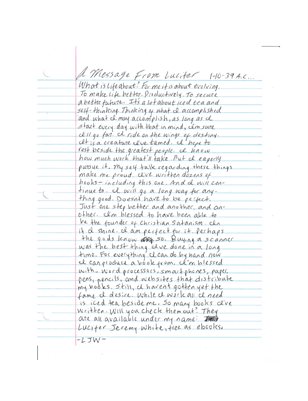 A Message From Lucifer 1-10-39 A.C.
What is life about? For me it is about evolving.
To make life better. Productively. To secure
a better future. It's a lot about iced tea and
self-thinking. Thinking of what I accomplished
and what I may accomplish, as long as I
start every day with that in mind, I'm sure
I'll go far. I ride on the wings of destiny.
It is a creature I've tamed. I hope to
rest beside the greatest people. I know
how much work that'll take. But I eagerly
pursue it. My self talk regarding these things
make me proud. I've written dozens of
books- including this one. And I will con-
tinue to. I will go a long way for any-
thing good. Doesn't have to be perfect.
Just one step better and another, and an-
other. I'm blessed to have been able to
be the founder of Christian Satanism. I'm
if I shine. I am perfect for it. Perhaps
the gods know so. Buying a scanner
was the best thing I've done in a long
time. For everything I can do by hand now
I can produce a book from. I'm blessed
with word processors, smart phones, paper,
pens, pencils, and websites that distribute
my books. Still, I haven't gotten yet the
fame I desire. While I work as I need
is iced tea beside me. So many books I've
written. Will you check them out? They
are all available under my name
Lucifer Jeremy White, free as ebooks.
-LJW-